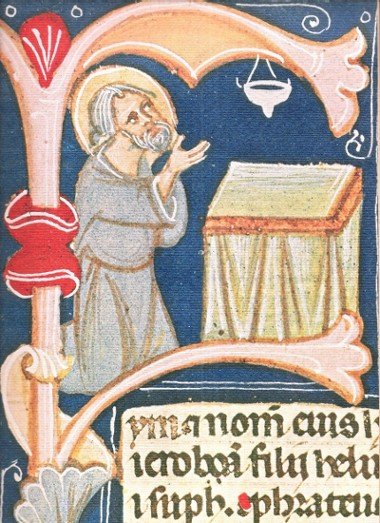 ym ⁊ nom̄ eius h
ieroboā filij heliu
i suph. ephrateu